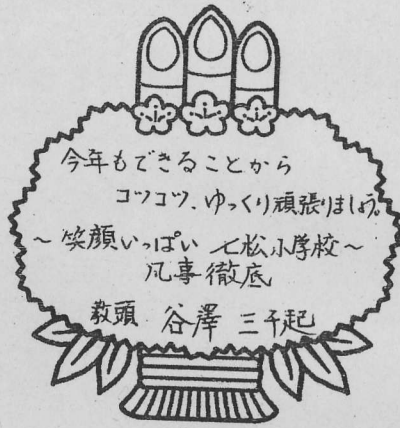 今年もできることから
コツコツ、ゆっくり頑張りましょう。
～笑顔いっぱい 七松小学校～
凡事徹底
教頭 谷澤 三千起